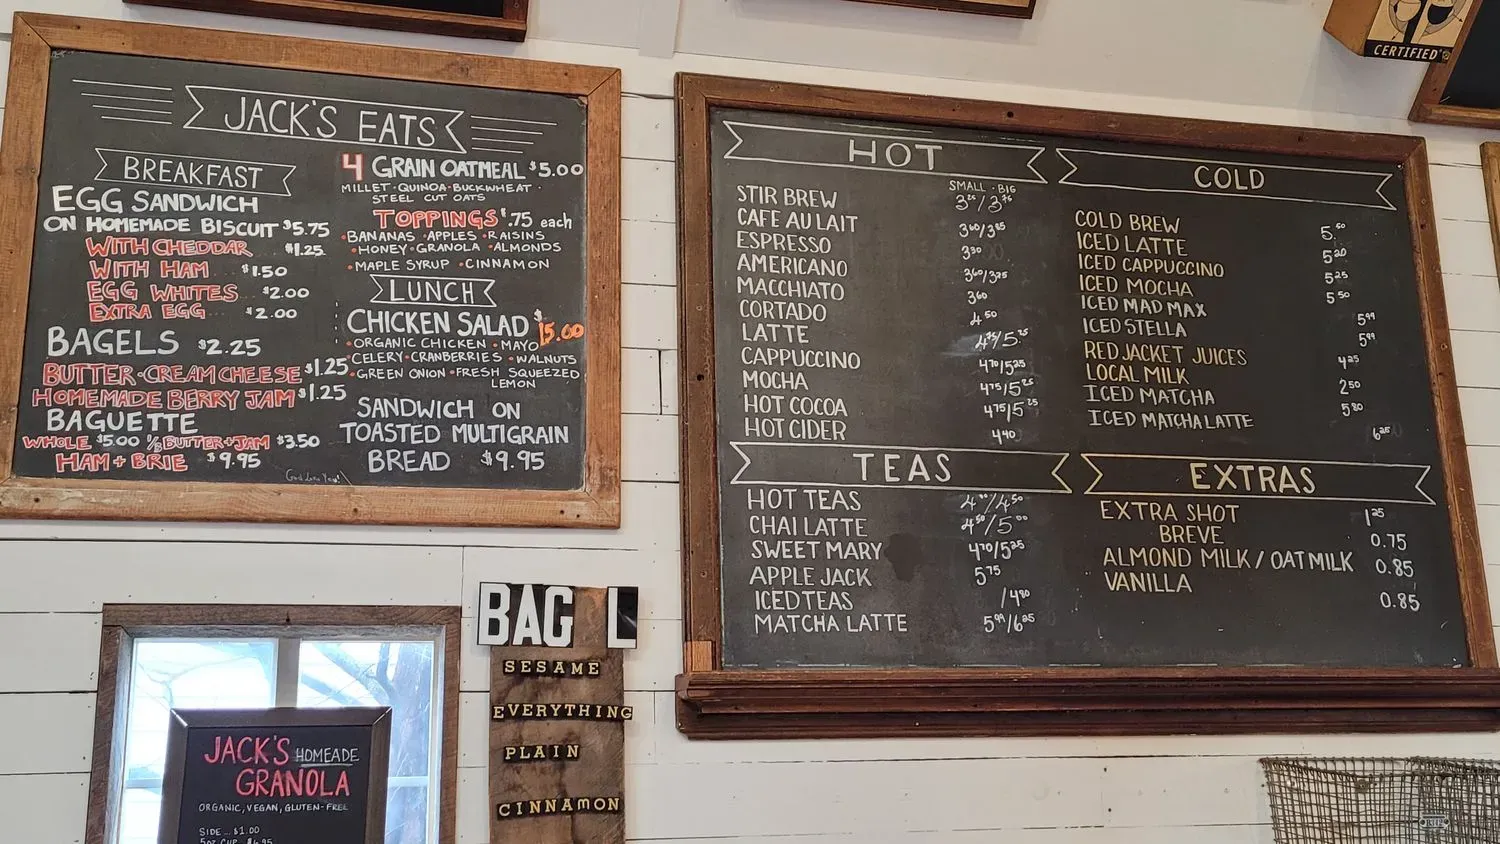 JACK'S EATS
BREAKFAST
EGG SANDWICH
ON HOMEMADE BISCUIT $5.75
WITH CHEDDAR $1.25
WITH HAM $1.50
EGG WHITES $2.00
EXTRA EGG $2.00
BAGELS $2.25
BUTTER·CREAM CHEESE $1.25
HOMEMADE BERRY JAM $1.25
BAGUETTE
WHOLE $5.00 1/2 BUTTER+JAM $3.50
HAM + BRIE $9.95
4 GRAIN OATMEAL $5.00
MILLET·QUINOA·BUCKWHEAT·
STEEL CUT OATS
TOPPINGS $.75 each
·BANANAS ·APPLES ·RAISINS
·HONEY ·GRANOLA ·ALMONDS
·MAPLE SYRUP ·CINNAMON
LUNCH
CHICKEN SALAD $15.00
·ORGANIC CHICKEN ·MAYO
·CELERY ·CRANBERRIES ·WALNUTS
·GREEN ONION ·FRESH SQUEEZED
LEMON
SANDWICH ON
TOASTED MULTIGRAIN
BREAD $9.95
HOT
SMALL · BIG
STIR BREW
CAFE AU LAIT
ESPRESSO 3.30
AMERICANO
MACCHIATO 3.60
CORTADO 4.50
LATTE
CAPPUCCINO 4.70/5.25
MOCHA 4.75/5.25
HOT COCOA 4.75/5.25
HOT CIDER 4.40
TEAS
HOT TEAS 4.00/4.50
CHAI LATTE 4.50/5.00
SWEET MARY 4.70/5.25
APPLE JACK 5.75
ICED TEAS /4.90
MATCHA LATTE 5.99/6.25
COLD
COLD BREW 5.50
ICED LATTE 5.20
ICED CAPPUCCINO 5.25
ICED MOCHA 5.50
ICED MAD MAX 5.99
ICED STELLA 5.99
RED JACKET JUICES 4.25
LOCAL MILK 2.50
ICED MATCHA 5.80
ICED MATCHA LATTE 6.25
EXTRAS
EXTRA SHOT 1.25
BREVE 0.75
ALMOND MILK / OAT MILK 0.85
VANILLA 0.85
CERTIFIED
BAG L
SESAME
EVERYTHING
PLAIN
CINNAMON
JACK'S HOMEADE
GRANOLA
ORGANIC, VEGAN, GLUTEN-FREE
SIDE... $1.00
5oz CUP $6.95